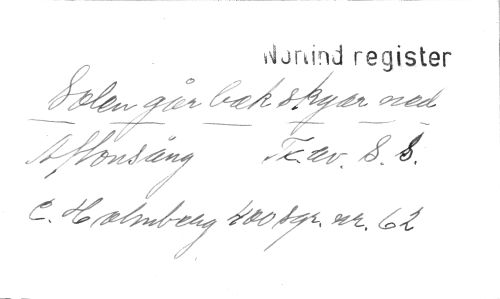 Norlind register
Solen går bak skyar ned
Aftonsång Tk. av. S. S.
C. Holmberg 400 sgr. nr. 62